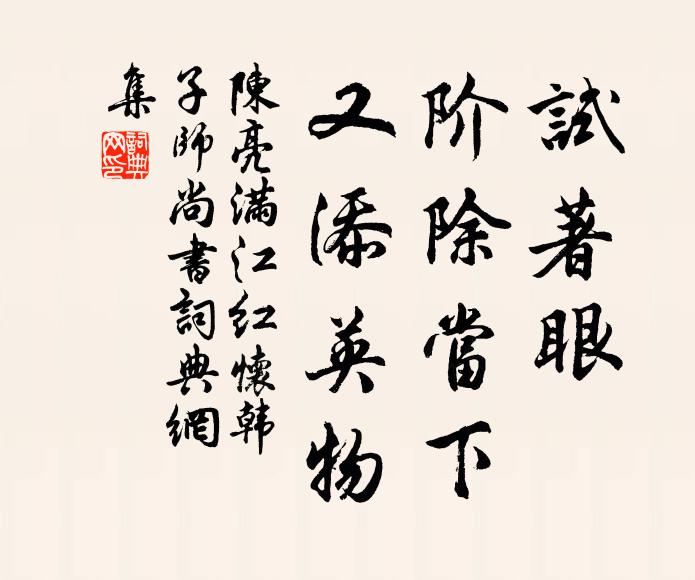 試著眼
阶除當下
又添英物
陳亮滿江红懷韩
子師尚書詞典網
集
詞典
网印